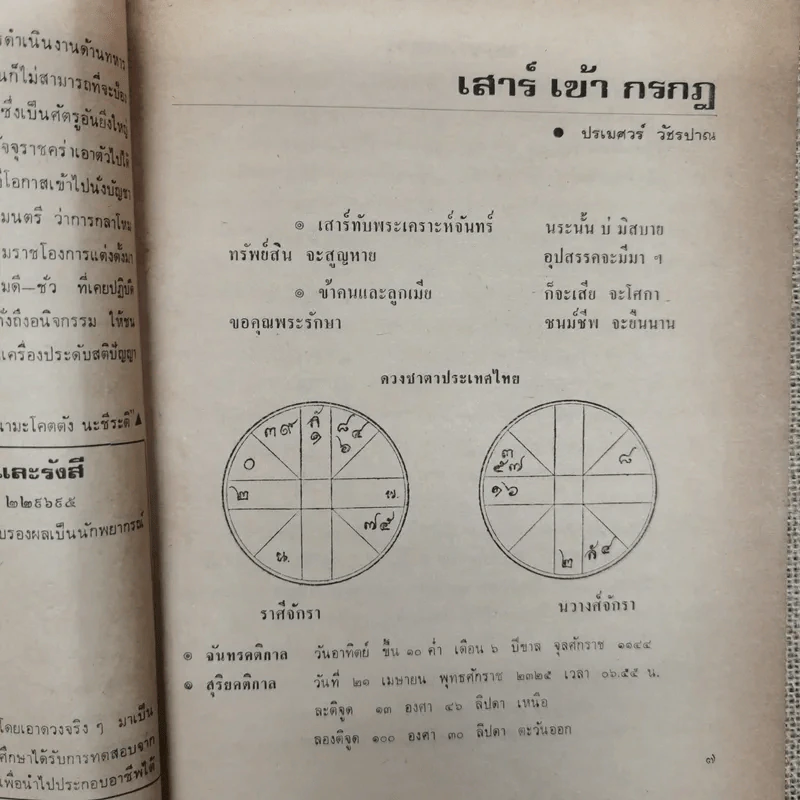 รดำเนินงานด้านทหาร
นก็ไม่สามารถที่จะป้อง
ซึ่งเป็นศัตรูอันยิ่งใหญ่
จจุราชคร่าเอาตัวไปให้
โอกาสเข้าไปนั่งบัญชา
มนตรี ว่าการกลาโหม
มราชโองการแต่งตั้งมา
มดี-ชั่ว ที่เคยปฏิบัติ
ถึงอนิจกรรม ให้ชน
เครื่องประดับสติปัญญา
นามะโคตตัง นะชีระติ"▲
และรังสี
๒๒๙๖๙๕
บรองผลเป็นนักพยากรณ์
โดยเอาดวงจริง ๆ มาเป็น
ศึกษาได้รับการทดสอบจาก
เพื่อนำไปประกอบอาชีพได้
เสาร์ เข้า กรกฎ
● ปรเมศวร์ วัชรปาณ
๏ เสาร์ทับพระเคราะห์จันทร์ นระนั้น บ่ มิสบาย
ทรัพย์สิน จะสูญหาย อุปสรรคจะมีมา ฯ
๏ ข้าคนและลูกเมีย ก็จะเสีย จะโศกา
ขอคุณพระรักษา ชนม์ชีพ จะยืนนาน
ดวงชาตาประเทศไทย
๓๙ ลั ๑ ๘ ๔ ๖
๐
๒ ๗ ๕
น.
๓ ๕ ๗ ๘
๑ ๖
๒ ลั ๔
ราศีจักรา นวางศ์จักรา
๏ จันทรคติกาล วันอาทิตย์ ขึ้น ๑๐ ค่ำ เดือน ๖ ปีขาล จุลศักราช ๑๑๔๔
๏ สุริยคติกาล วันที่ ๒๑ เมษายน พุทธศักราช ๒๓๒๕ เวลา ๐๖.๕๕ น.
ละติจูด ๑๓ องศา ๔๖ ลิปดา เหนือ
ลองติจูด ๑๐๐ องศา ๓๐ ลิปดา ตะวันออก
๗